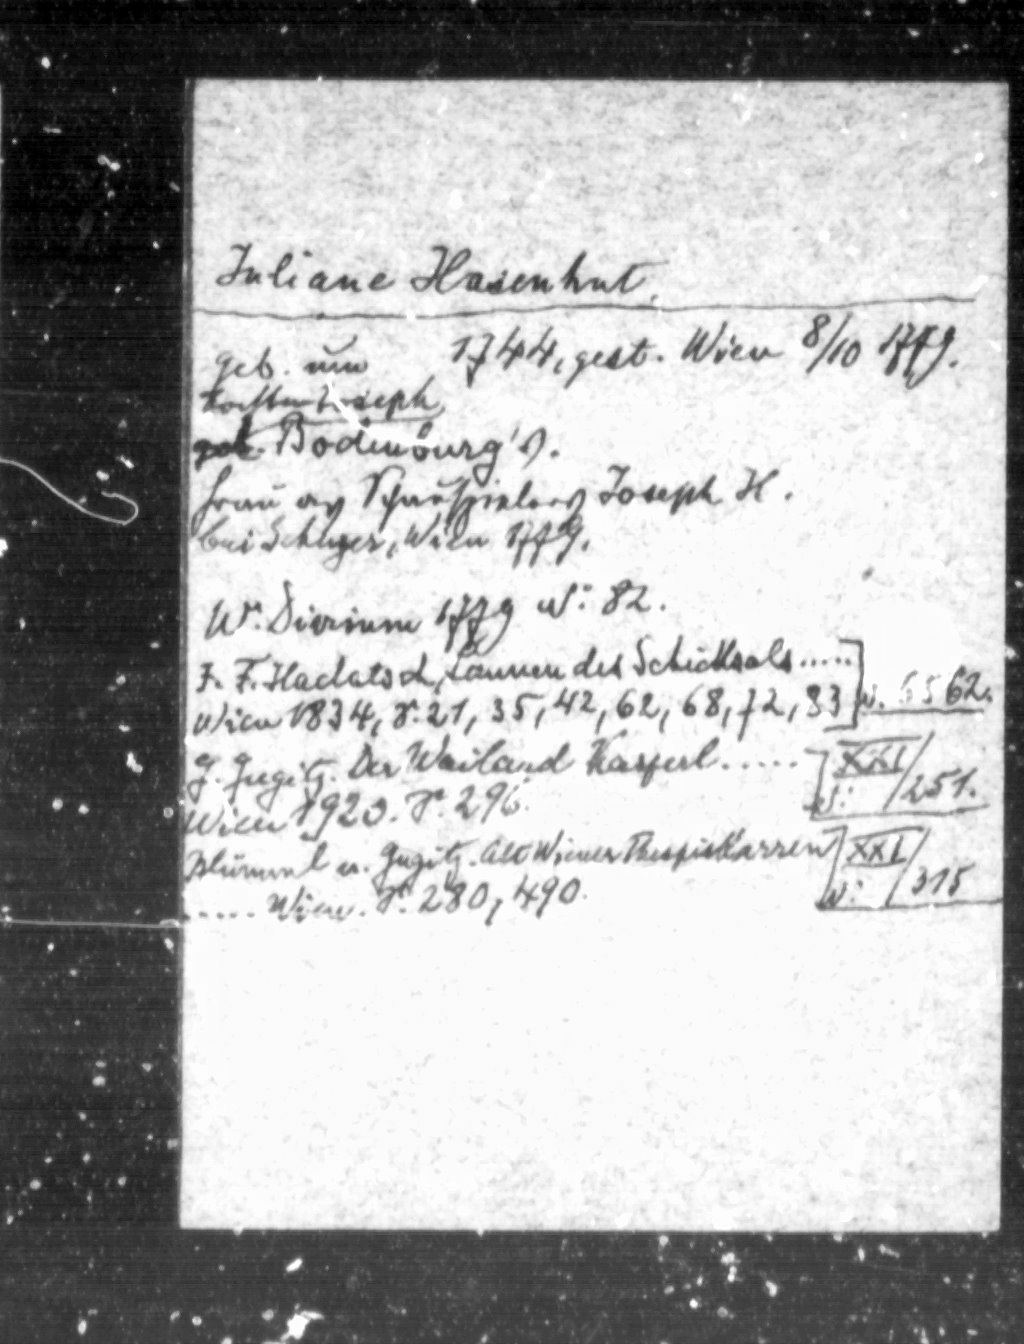 Juliane Hasenhut.
geb. um 1744, gest. Wien 8/10 1779.
Tochter Joseph
geb. Bodenburg's.
Frau des Schauspielers Joseph H.
bei Scherzer, Wien 1779.
W. Diarium 1779 N: 82.
F. F. Hadatsch, Launen des Schicksals.....
Wien 1834, S. 21, 35, 42, 62, 68, 72, 83
N. 6562.
G. Gugitz. Der Weiland Kasperl.....
Wien 1920. S. 296.
XXI/
N: /251.
Blümml u. Gugitz. Alt Wiener Thespiskarren
..... Wien. S. 280, 490.
XXI/
N: /315